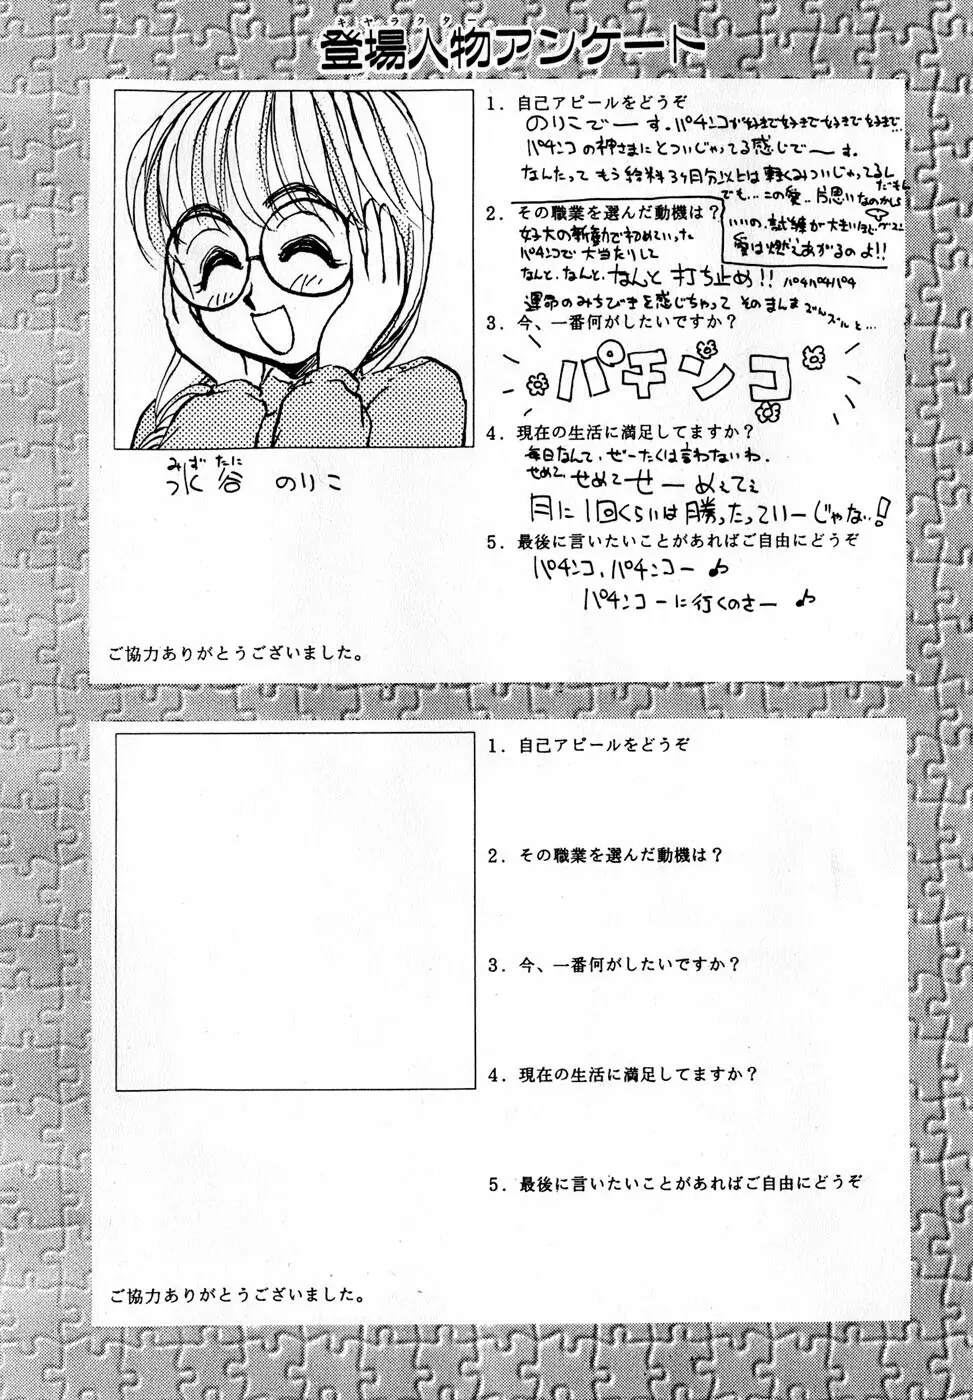 キャラクター
登場人物アンケート
1．自己アピールをどうぞ
のりこでーす。パチンコが好きで好きで好きで好きで…
パチンコの神さまにとついじゃってる感じでーす。
なんたって もう給料3ヶ月分以上は軽くみついじゃってるん
だもん
でも…この愛…片思いなのかしら
いいの、試練が大きいほど
愛は燃えあがるのよ!!
2．その職業を選んだ動機は？
で初めていった
パチンコで大当たりして
なんと、なんと、なんと 打ち止め!! パチパチパチ
運命のみちびきを感じちゃって そのまんま ずんズルと…
3．今、一番何がしたいですか？
パチンコ
4．現在の生活に満足してますか？
毎日なんて、ぜーたくは言わないわ。
せめて、せめて せーめぇてぇ
月に1回くらいは勝ったっていーじゃない!
5．最後に言いたいことがあればご自由にどうぞ
パチンコ、パチンコー♪
パチンコーに行くのさー♪
みずたに
水谷 のりこ
ご協力ありがとうございました。
1．自己アピールをどうぞ
2．その職業を選んだ動機は？
3．今、一番何がしたいですか？
4．現在の生活に満足してますか？
5．最後に言いたいことがあればご自由にどうぞ
ご協力ありがとうございました。